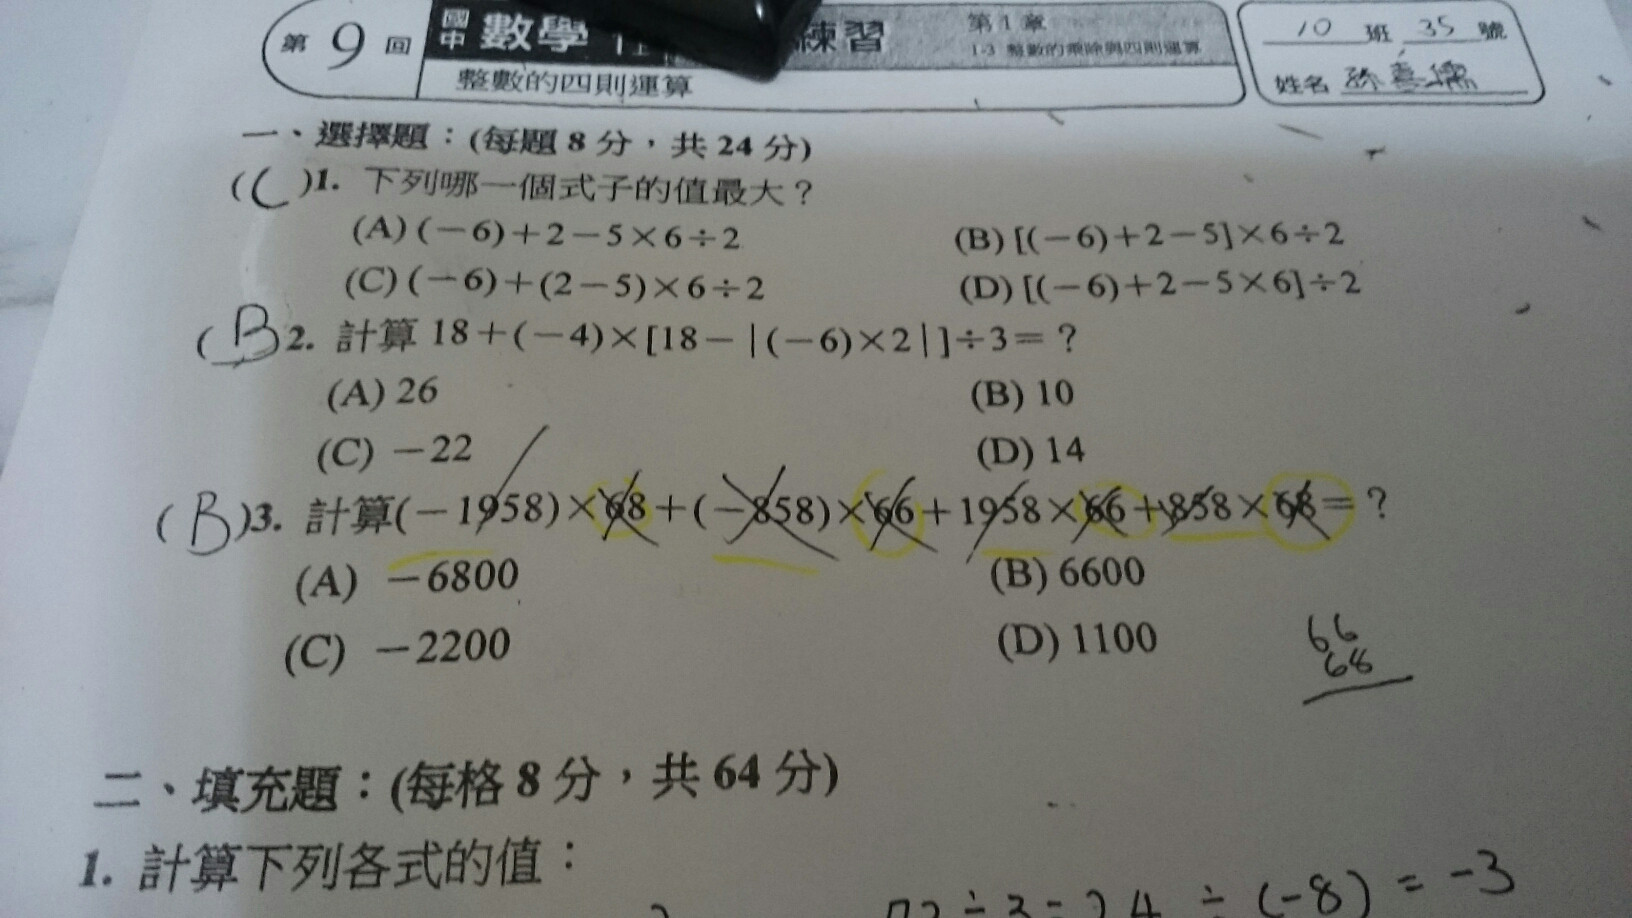 第 9 回 國中 數學 練習 第1章
1-3 整數的乘除與四則運算
整數的四則運算
10 班 35 號
姓名
一、選擇題：(每題 8 分，共 24 分)
(C)1. 下列哪一個式子的值最大？
(A) (－6)＋2－5×6÷2 (B) [(－6)＋2－5]×6÷2
(C) (－6)＋(2－5)×6÷2 (D) [(－6)＋2－5×6]÷2
(B 2. 計算 18＋(－4)×[18－|(－6)×2|]÷3＝？
(A) 26 (B) 10
(C) －22 (D) 14
(B)3. 計算(－1958)×68＋(－858)×66＋1958×66＋858×68＝？
(A) －6800 (B) 6600
(C) －2200 (D) 1100
66
68
二、填充題：(每格 8 分，共 64 分)
1. 計算下列各式的值：
72÷3=24÷(-8)=-3